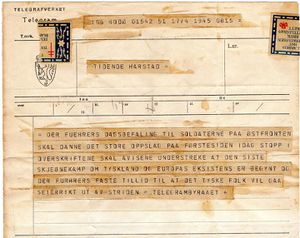 TELEGRAFVERKET
Telegram
T.nrk.
L.nr.
158 4006 01542 51 1774 1945 0815 =
TIDENDE HARSTAD =
= DER FUEHRERS DAGSBEFALING TIL SOLDATERNE PAA OSTFRONTEN
SKAL DANNE DET STORE OPPSLAG PAA FORSTESIDEN IDAG STOPP I
OVERSKRIFTENE SKAL AVISENE UNDERSTREKE AT DEN SISTE
SKJEBNEKAMP OM TYSKLAND OG EUROPAS EKSISTENS ER BEGYNT OG
DER FUHRERS FASTE TILLID TIL AT DET TYSKE FOLK VIL GAA
SEIERRIKT UT AV STRIDEN = TELEGRAMBYRAAET +